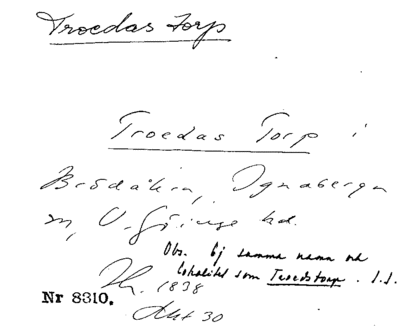 Troedas torp
Troedas Torp i
Brödåkra, Ignaberga
sn, V. Göinge hd.
Obs. Ej samma namn och
lokalitet som Troedstorp. I.I.
1838
Nr 8310.
Akt 30